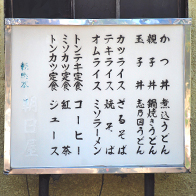 かつ丼 煮込うどん
親子丼 鍋焼きうどん
玉子丼 志乃田うどん
カツライス ざるそば
テキライス 焼そば
オムライス ミソラーメン
トンテキ定食 コーヒー
ミソカツ定食 紅茶
トンカツ定食 ジュース